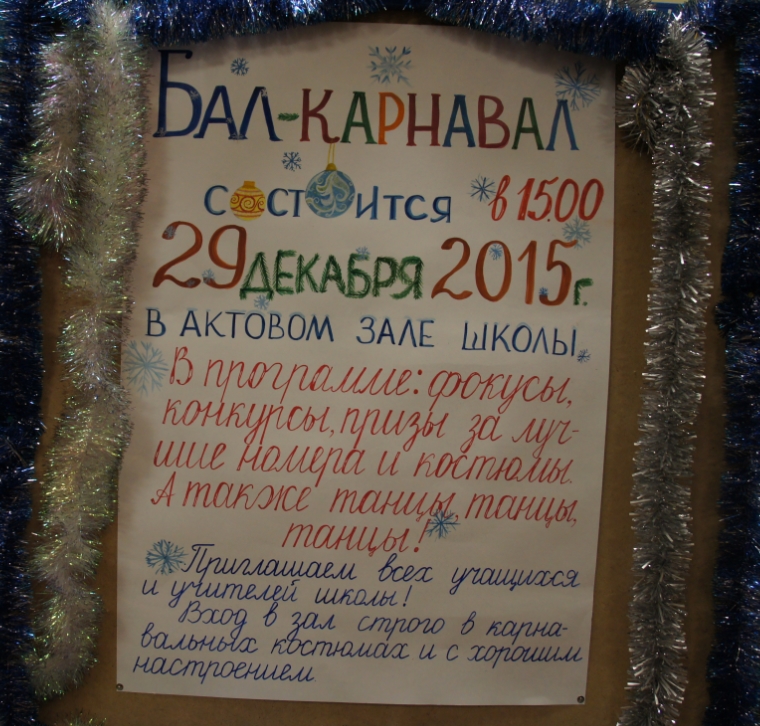 БАЛ-КАРНАВАЛ
состоится в 15.00
29 ДЕКАБРЯ 2015г.
В АКТОВОМ ЗАЛЕ ШКОЛЫ.
В программе: фокусы,
конкурсы, призы за луч-
шие номера и костюмы.
А также танцы, танцы,
танцы!
Приглашаем всех учащихся
и учителей школы!
Вход в зал строго в карна-
вальных костюмах и с хорошим
настроением